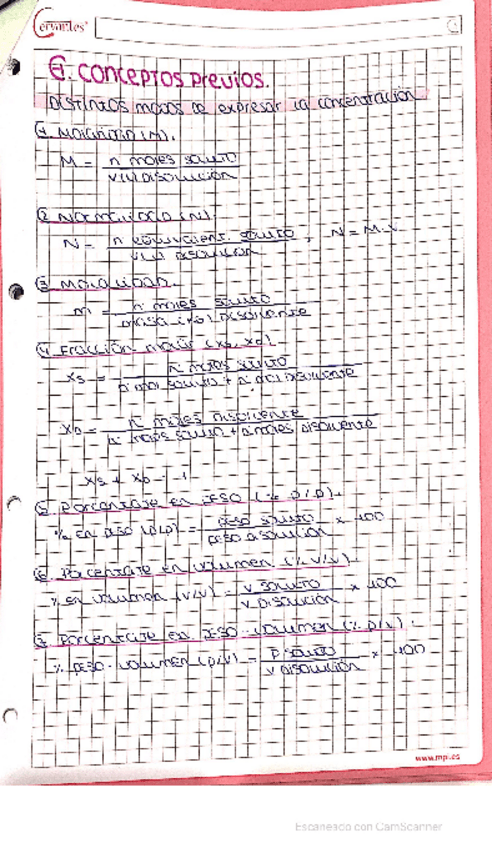 Cervantes
CONCEPTOS PREVIOS.
DISTINTOS MODOS DE expresar la concentración
1. MOLARIDAD (M).
M = n moles soluto / V(L) DISOLUCIÓN
2. NORMALIDAD (N).
N = n equivalent. soluto / V(L) DISOLUCIÓN , N = M·v.
3. MOLALIDAD.
m = n moles soluto / masa disolvente
4. Fracción molar (xs, xD).
xs = n moles soluto / n mol soluto + n mol disolvente
xD = n moles disolvente / n moles soluto + n moles disolvente
xs + xD = 1
5. Porcentaje en PESO (% p/p).
% en peso (p/p) = peso soluto / peso disolución × 100
6. Porcentaje en volumen (% v/v).
% en volumen (v/v) = V SOLUTO / V DISOLUCIÓN × 100
7. Porcentaje en PESO-volumen (% p/v).
% PESO-volumen (p/v) = P SOLUTO / V DISOLUCIÓN × 100
www.mp.es
Escaneado con CamScanner